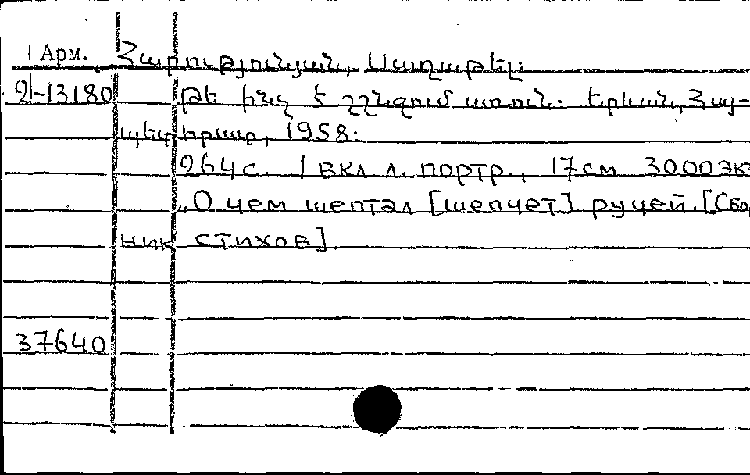 Арм. Հարությունյան, Սաղաթել:
2-13180 Թե ինչ է շշնջում առուն. Երևան, Հայ-
պետհրատ, 1958:
264с. 1 вкл л. портр., 17см 3000эк
"О чем шептал [шепчет] ручей. [Сбор
ник стихов].
37640